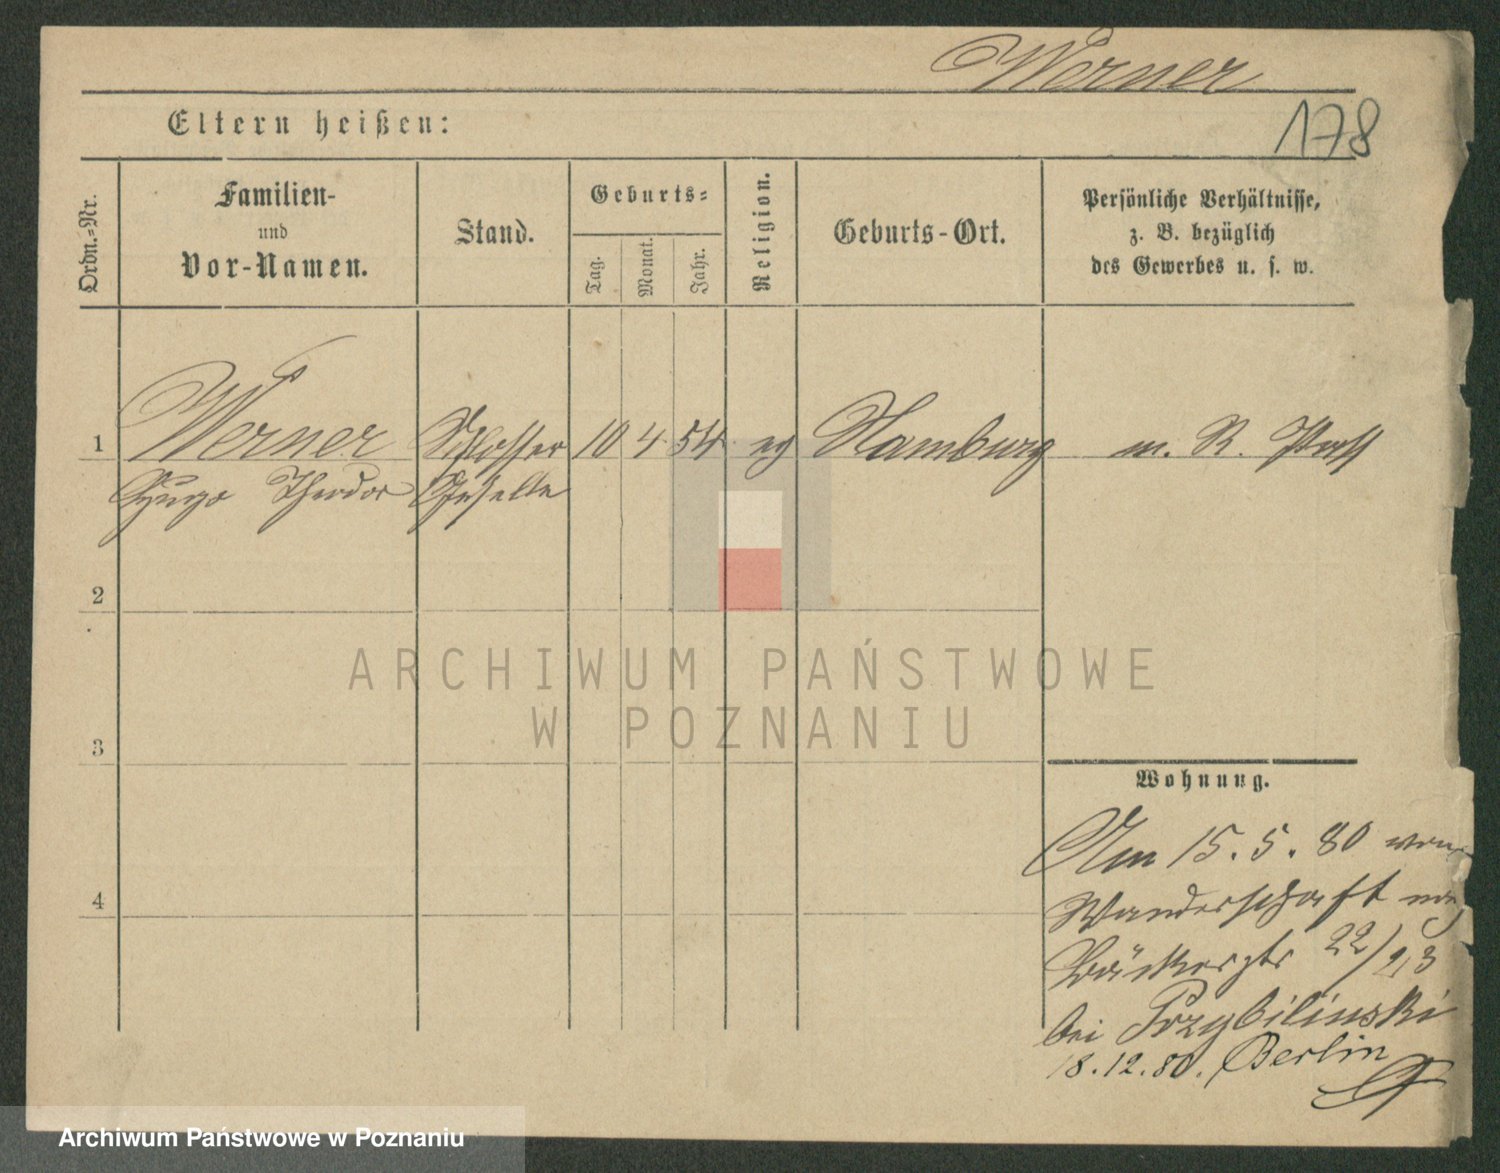 Werner
178
Eltern heißen:
Ordn.-Nr.
Familien-
und
Vor-Namen.
Stand.
Geburts-
Tag.
Monat.
Jahr.
Religion.
Geburts-Ort.
Persönliche Verhältnisse,
z. B. bezüglich
des Gewerbes u. s. w.
1 Werner Schlosser 10 4. 54. ev Hamburg m. R. Pass
Hugo Theodor Geselle
2
3
4
ARCHIWUM PAŃSTWOWE
W POZNANIU
Wohnung.
Am 15. 5. 80 von
Wanderschaft nach
Bäckerstr 22/23
bei Przybilinski
18.12.80. Berlin
Archiwum Państwowe w Poznaniu